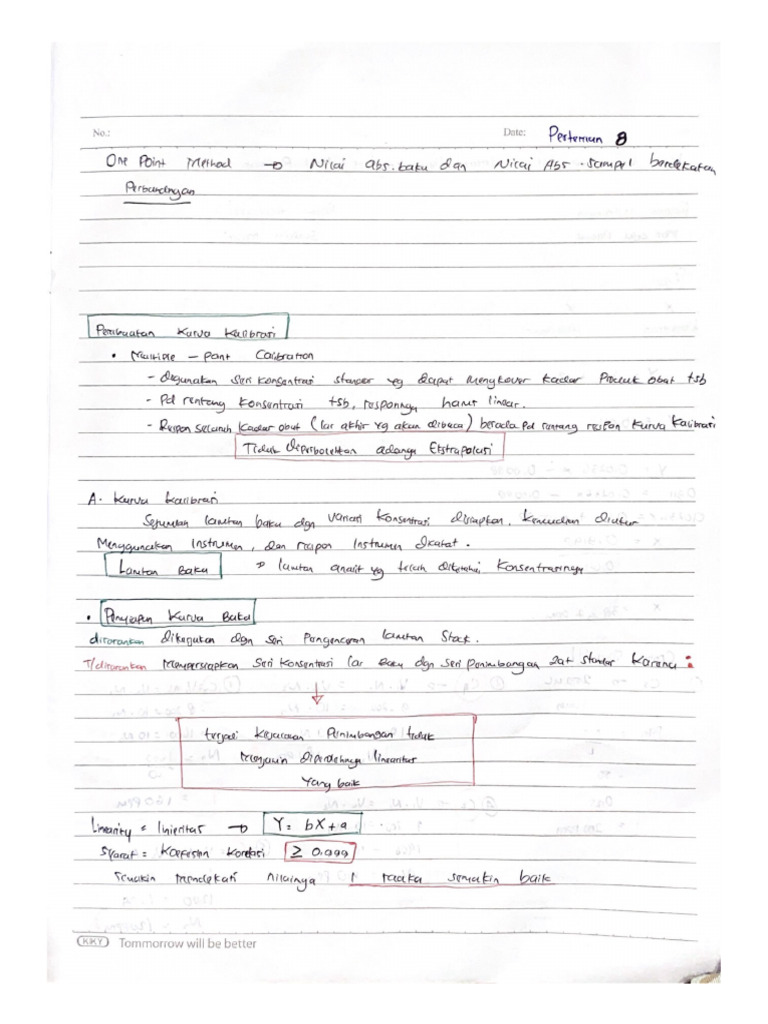 No.:
Date: Pertemuan 8
One Point Method → Nilai abs. baku dan Nilai Abs. sampel berdekatan
Perbandingan
Pembuatan Kurva Kalibrasi
• Multiple - Point Calibration
- digunakan seri konsentrasi standar yg dapat mengkover kadar Produk obat tsb
- Pd rentang konsentrasi tsb, responnya harus linear.
- Respon seluruh kadar obat (lar akhir yg akan dibaca) berada pd rentang respon kurva kalibrasi
Tidak diperbolehkan adanya Ekstrapolasi
A. Kurva Kalibrasi
Sejumlah larutan baku dgn variasi konsentrasi disiapkan, kemudian diukur
Menggunakan Instrumen, dan respon Instrumen dicatat.
Larutan Baku → larutan analit yg telah diketahui Konsentrasinya
• Penyiapan Kurva Baku
disarankan dikerjakan dgn seri Pengenceran larutan Stock.
T/disarankan mempersiapkan seri konsentrasi lar baku dgn seri penimbangan zat standar karena :
terjadi kejadian Penimbangan tidak
menjamin diperolehnya linearitas
yang baik
Linearity = linieritas → Y = bX + a
Syarat = Koefisien korelasi ≥ 0.999
Semakin mendekati nilainya 1 maka semakin baik
KKY Tommorrow will be better